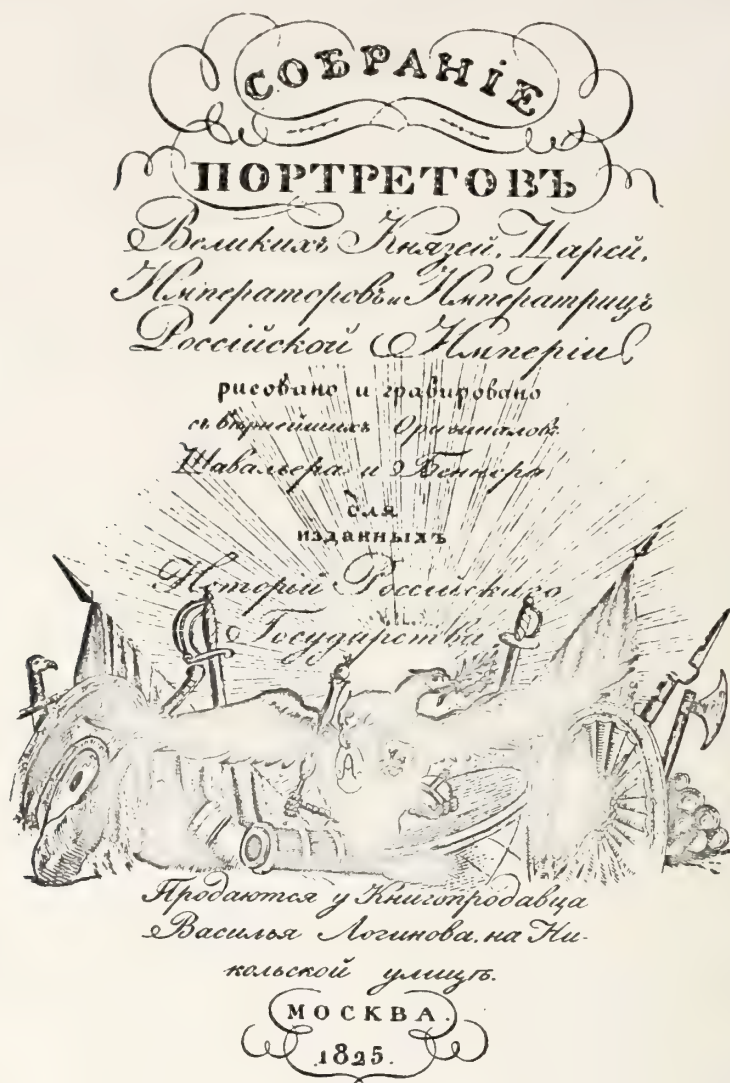 СОБРАНІЕ
ПОРТРЕТОВЪ
Великихъ Князей, Царей,
Императоровъ и Императрицъ
Россійской Имперіи
рисовано и гравировано
съ вѣрнейшихъ Оригиналовъ
Шавальера и Беннера
для
изданныхъ
Исторій Россійскаго
Государства
Продаются у Книгопродавца
Василья Логинова, на Ни-
кольской улицѣ.
МОСКВА.
1825.